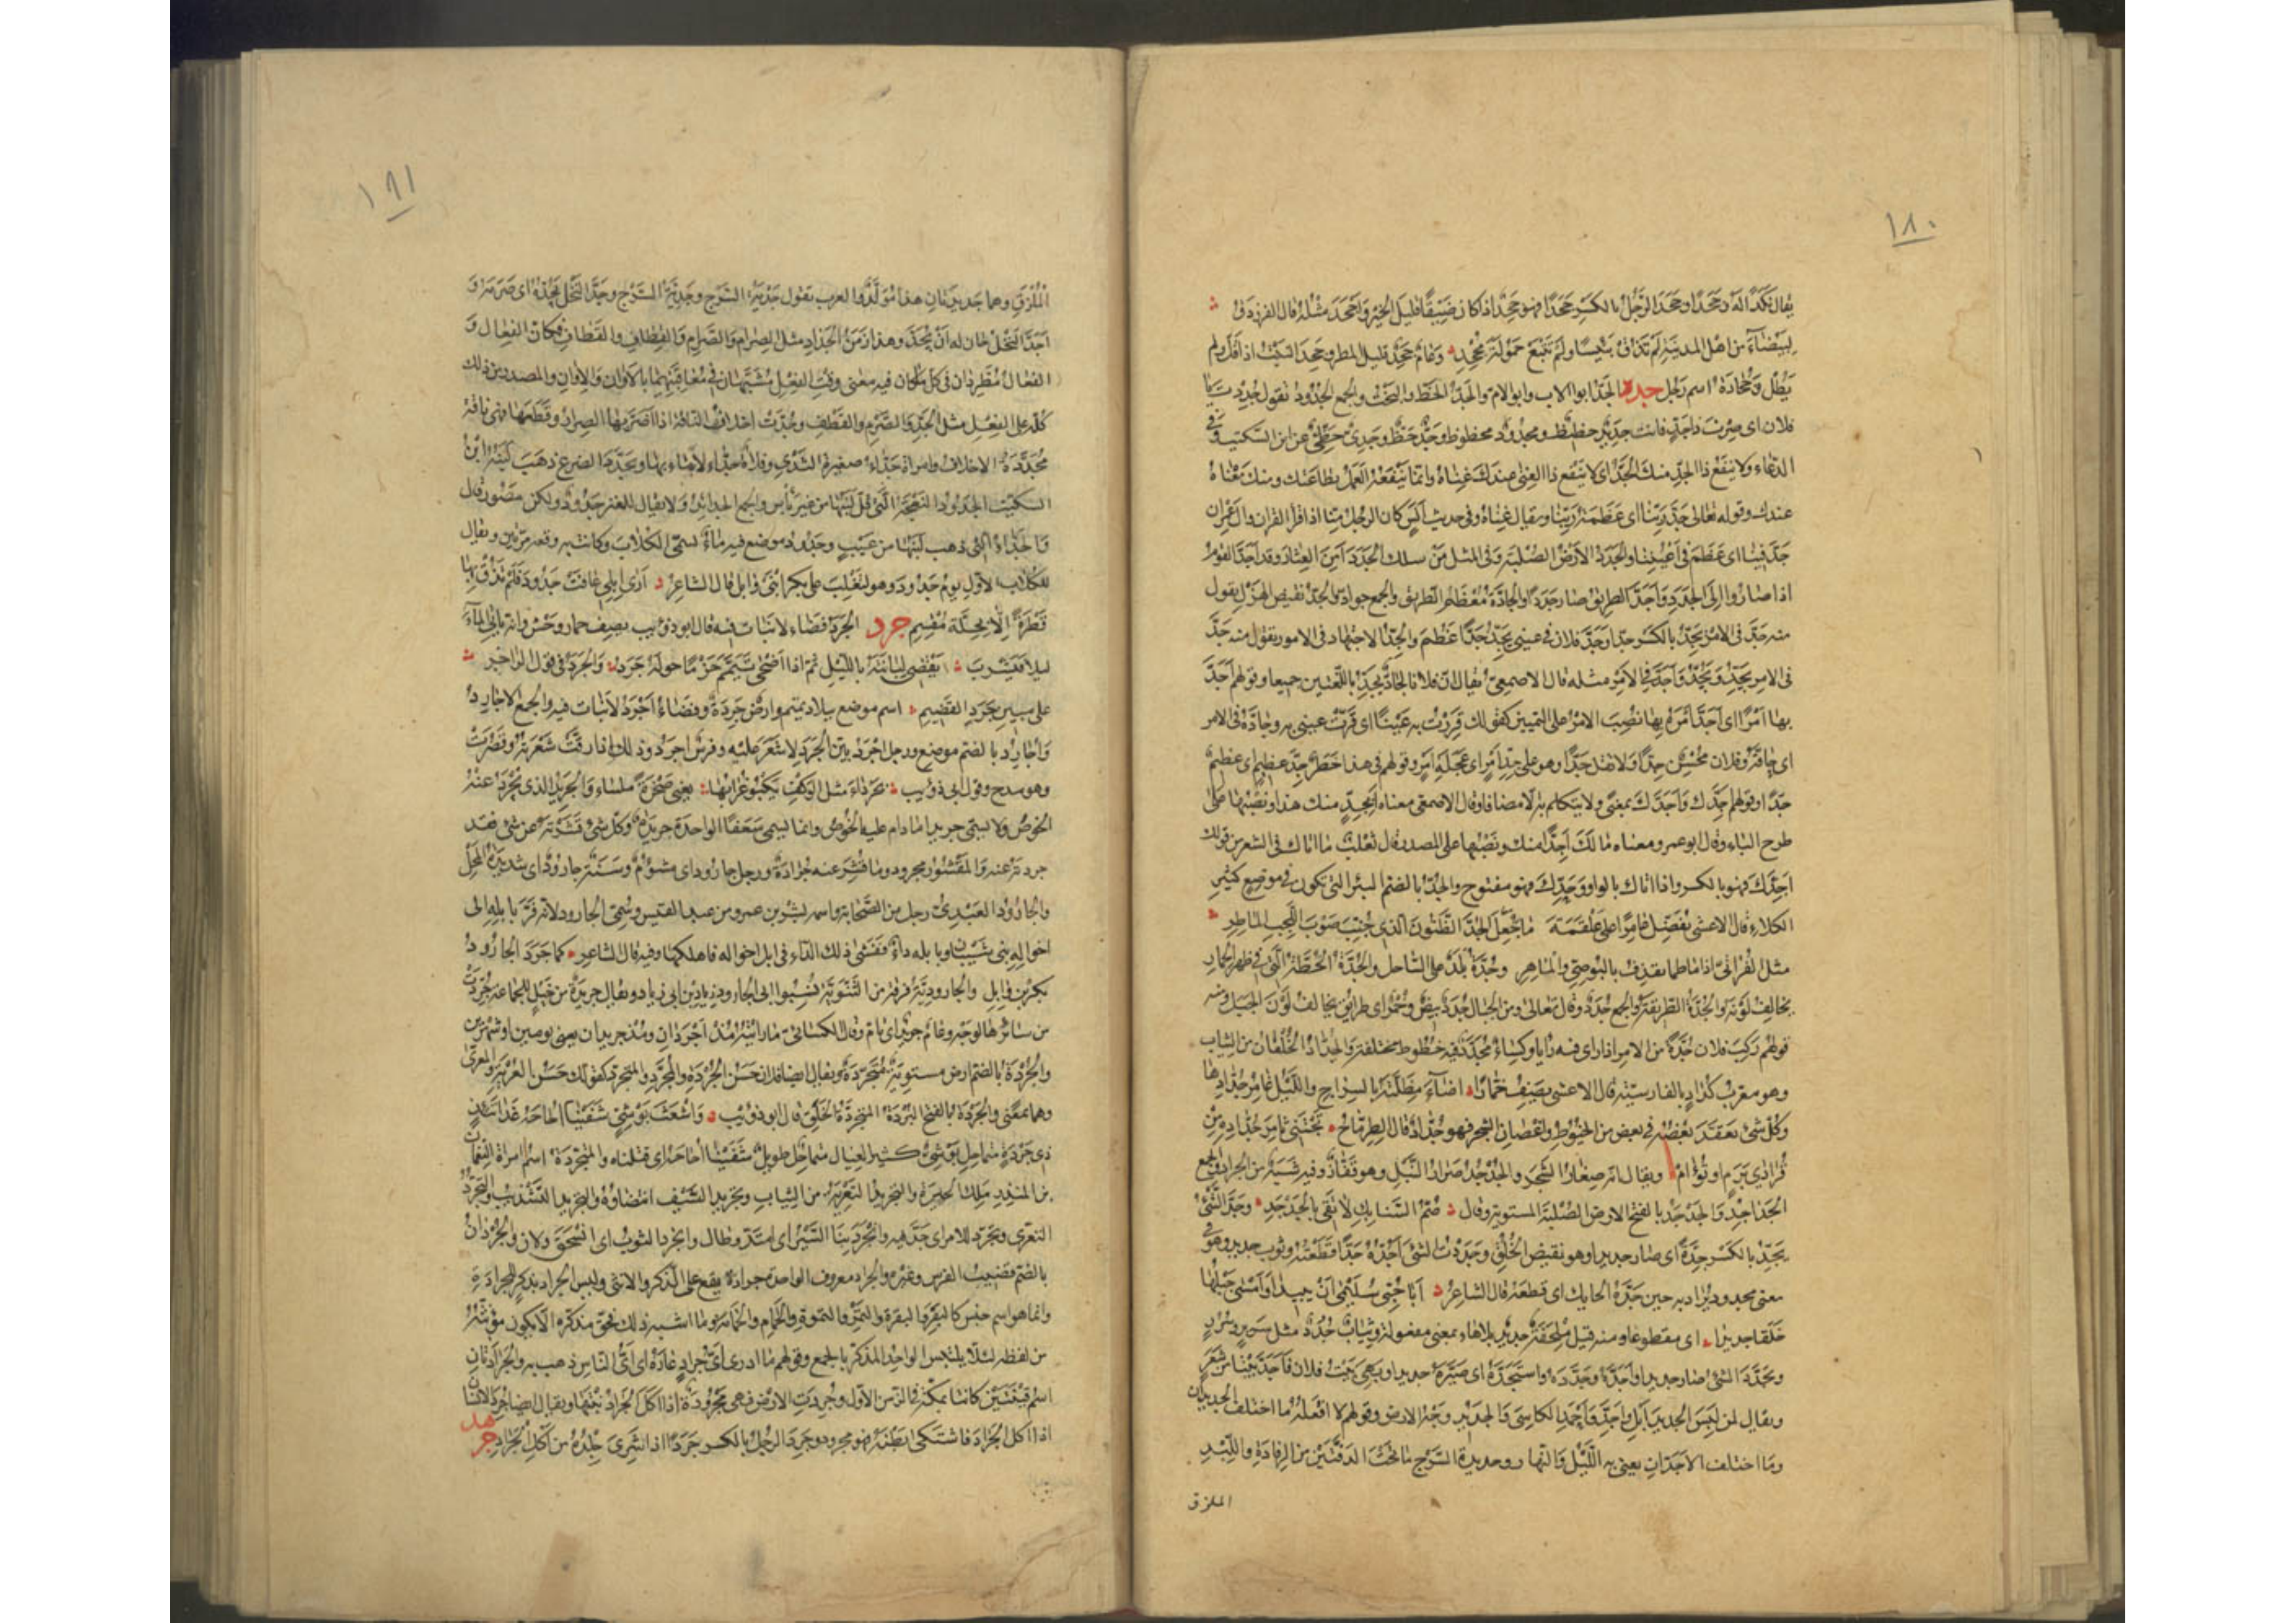 ١٨٠
يقال نكدًا له وجحدًا وجحد الرجل بالكسر جحدًا فهو جحد اذا كان ضيقًا قليل الخير واجحد مثله قال الفرزدق
لبيضاء من اهل المدينة لم تذق بئيسا ولم تتبع حمولة مجحد وعام جحد قليل المطر وجحد النبت اذا قل ولم
يطل وجحادة اسم رجل جدد الجد ابو الاب وابو الام والجد الحظ والبخت والجمع الجدود تقول جددت يا
فلان اى صرت ذا جد فانت جديد حظيظ ومجدود محظوظ وجد حظ وجدى حظى عن ابن السكيت وفى
الدعاء ولا ينفع ذا الجد منك الجد اى لا ينفع ذا الغنى عندك غناه وانما ينفعه العمل بطاعتك ومنك معناه
عندك وقوله تعالى جد ربنا اى عظمة ربنا ويقال غناه وفى حديث انس كان الرجل منا اذا قرا القران وال عمران
جد فينا اى عظم فى اعيننا والجدد الارض الصلبة وفى المثل من سلك الجدد امن العثار وقد اجد القوم
اذا صاروا الى الجدد واجد الطريق صار جددًا والجادة معظم الطريق والجمع جواد والجد نقيض الهزل يقول
منه جد فى الامر يجد بالكسر جدا وجد فلان فى عينى يجد جدا عظم والجد الاجتهاد فى الامور يقول منه جد
فى الامر يجد ويجد واجد فى الامر مثله قال الاصمعى يقال ان فلانا لجاد مجد باللغتين جميعا وقولهم اجد
بها امرًا اى اجد امره بها نصب الامر على التمييز كقولك قررت به عينا اى قرت عينى به وجاده فى الامر
اى حاقه وفلان محسن جدًا ولا تقل جدا وهو على جد امر اى عجلة امر وقولهم فى هذا خطر جد عظيم اى عظيم
جدًا وقولهم اجدك واجدك بمعنى ولا يتكلم به الا مضافا وقال الاصمعى معناه ابجد منك هذا ونصبها على
طرح الباء وقال ابو عمرو معناه ما لك اجدًا منك ونصبها على المصدر قال ثعلب ما اتاك فى الشعر من قولك
اجدك فهو بالكسر واذا اتاك بالواو وجدك فهو مفتوح والجد بالضم البئر التى تكون فى موضع كثير
الكلاء قال الاعشى يفضل عامرًا على علقمة ما جعل الجد الظنون الذى جنب صوب اللجب الماطر
مثل الفراتى اذا ما طما يقذف بالبوصى والماهر وجدة بلد على الساحل والجدة الخطة التى فى ظهر الحمار
تخالف لونه والجدة الطريقة والجمع جدد وقال تعالى ومن الجبال جدد بيض وحمر اى طرايق تخالف لون الجبل ومنه
قولهم ركب فلان جدة من الامر اذا راى فيه رايا وكساء مجدد فيه خطوط مختلفة والجداد الخلقان من الثياب
وهو معرب كداد بالفارسية قال الاعشى يصف خمارا اضاء مظلته بالسراج والليل غامر جدادها
وكل شئ تعقد بعضه فى بعض من الخيوط واغصان الشجر فهو جداد قال الطرماح تجتنى ثامر جداده من
فرادى برم او تؤام ويقال انه صغار الشجر والجدجد صرار الليل وهو قفاز وفيه شبه من الجراد والجمع
الجداجد والجدجد بالفتح الارض الصلبة المستوية وقال صم السنابك لا تقى بالجدجد وجد الشئ
يجد بالكسر جدة اى صار جديدا وهو نقيض الخلق وجددت الشئ اجده جدًا قطعته وثوب جديد وهو فى
معنى مجدود يراد به حين جده الحايك اى قطعه قال الشاعر ابى حبى سليمى ان يبيدا وامسى حبلها
خلقا جديدا اى مقطوعا ومنه قيل ملحفة جديد بلا هاء بمعنى مفعولة وثياب جدد مثل سرير وسرر
وتجدد الشئ صار جديدا واجده وجدده واستجده اى صيره جديدا وبهى بيت فلان فاجد بيتا من شعر
ويقال لمن لبس الجديد ابل واجد واحمد الكاسى والجديد وجه الارض وقولهم لا افعله ما اختلف الجديدان
وما اختلف الاجدان يعنى به الليل والنهار وجديدة السرج ما تحت الدفتين من الرفادة واللبد
الملزق
١٨١
الملزق وهما جديدتان هذا مولد والعرب تقول جدية السرج وجدية السرج وجد النخل يجده اى صرمه و
اجد النخل حان له ان يجد وهذا زمن الجداد مثل الصرام والصرام والقطاف والقطاف فكان الفعال و
الفعال مطردان فى كل ما كان فيه معنى وقت الفعل مشبهان فى معاقبتهما بالاوان والاوان والمصدر من ذلك
كله على الفعل مثل الجد والصرم والقطف وجدت اخلاف الناقة اذا اضر بها الصرار وقطعها فهى ناقة
مجددة الاخلاف وامراة جداء صغيرة الثدى وفلاة جداء لا ماء بها وتجدد الضرع ذهب لبنه ابن
السكيت الجدود النعجة التى قل لبنها من غير باس والجمع الجدائد ولا يقال للعنز جدود ولكن مصور قال
والجداء التى ذهب لبنها من عيب وجدود موضع فيه ماء يسمى الكلاب وكانت به وقعة مرتين ويقال
للكلاب الاول يوم جدود وهو لتغلب على بكر ابن وايل قال الشاعر ارى ابلى عافت جدود فلم تذق بها
قطرة الا تحلة مقسم جرد الجرد فضاء لا نبات فيه قال ابو ذؤيب يصف حمار وحش وانه ياتى الماء
ليلا فيشرب يقضى لبانته بالليل ثم اذا اضحى تيمم حزما حوله جرد والجرد فى قول الراجز
على مبين جرد القصيم اسم موضع ببلاد تميم وارض جردة وفضاء اجرد لا نبات فيه والجمع الاجارد
واجارد بالضم موضع ورجل اجرد بين الجرد لا شعر عليه وفرس اجرد وذلك اذا رقت شعرته وقصرت
وهو مدح وقول ابى ذؤيب بجرداء مثل الوكف يكبو غرابها يعنى صخرة ملساء والجريد الذى يجرد عنه
الخوص ولا يسمى جريدا ما دام عليه الخوص وانما يسمى سعفا الواحدة جريدة وكل شئ قشرته عن شئ فقد
جردته عنه والمقشور مجرود وما قشر عنه جرادة ورجل جارود اى مشؤوم وسنة جارود اى شديدة المحل
والجارود العبدى رجل من الصحابة واسمه بشر بن عمرو من عبد القيس وسمى الجارود لانه فر بابله الى
اخواله بنى شيبان وبابله داء ففشى ذلك الداء فى ابل اخواله فاهلكها وفيه قال الشاعر كما جرد الجارود
بكر بن وايل والجارودية فرقة من الشنوية نسبوا الى الجارود زياد بن ابى زياد ويقال جريدة من خيل للجماعة جردت
من سائرها لوجه وعام جريد اى تام وقال الكسائى ما رايته مذ اجردان ومذ جريدان يعنى يومين او شهرين
والجردة بالضم ارض مستوية متجردة ويقال ايضا فلان حسن الجردة والمجرد والمتجرد كقولك حسن العرية والمعرى
وهما بمعنى والجردة بالفتح البردة المنجردة الخلق قال ابو ذؤيب واشعث بوشى شفينا احاحه غداتئذ
ذى جردة متماحل بوشى كثير العيال متماحل طويل شفينا احاحه اى قتلناه والمتجردة اسم امراة النعمان
بن المنذر ملك الحيرة والتجريد التعرية من الثياب وتجريد السيف انتضاؤه والتجريد التشذيب والتجرد
التعرى وتجرد للامر اى جد فيه وانجرد بنا السير اى امتد وطال وانجرد الثوب اى انسحق ولان والجردان
بالضم قضيب الفرس وغيره والجراد معروف الواحدة جرادة يقع على الذكر والانثى وليس الجراد بذكر للجرادة
وانما هو اسم جنس كالبقر والبقرة والتمر والتمرة والحمام والحمامة وما اشبه ذلك فحق مذكره الا يكون مؤنثه
من لفظه لئلا يلتبس الواحد المذكر بالجمع وقولهم ما ادرى اى جراد عاره اى اى الناس ذهب به والجرادتان
اسم قينتين كانتا بمكة فى الزمن الاول وجردت الارض فهى مجرودة اذا اكل الجراد نبتها ويقال ايضا جرد الانسان
اذا اكل الجراد فاشتكى بطنه فهو مجرود وجرد الرجل بالكسر جردًا اذا شرى جلده من اكل الجراد جرهد